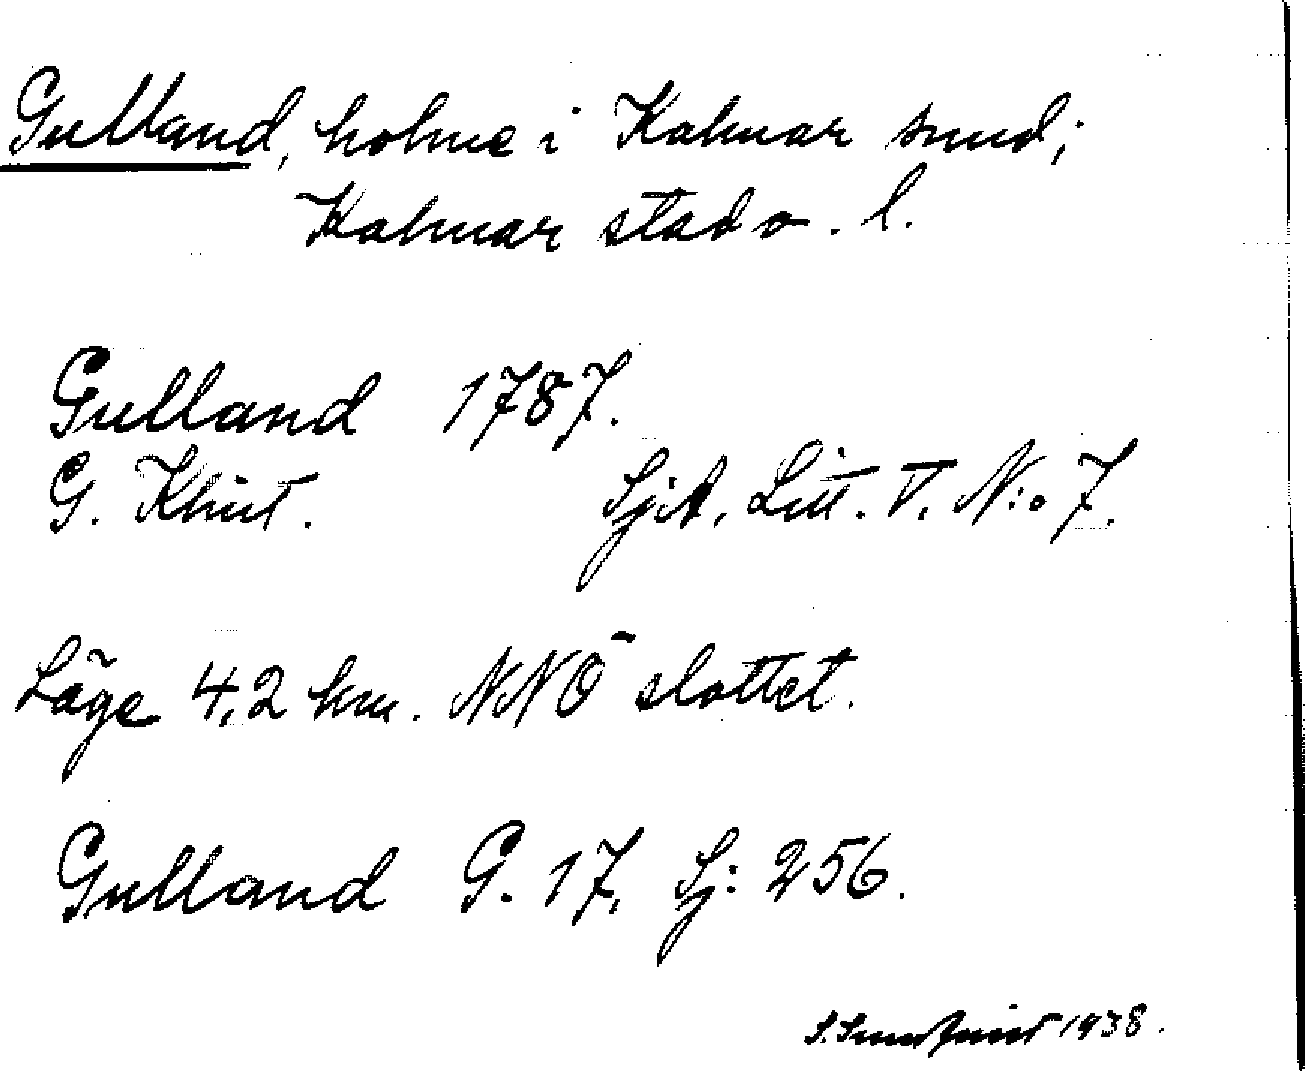 Gulland, holme i Kalmar sund;
Kalmar stad o. l.
Gulland 1787.
G. Klint. SjA. Litt. V. N:o 7.
Läge 4,2 km. NNÖ slottet.
Gulland G. 17, Sj: 256.
1938.